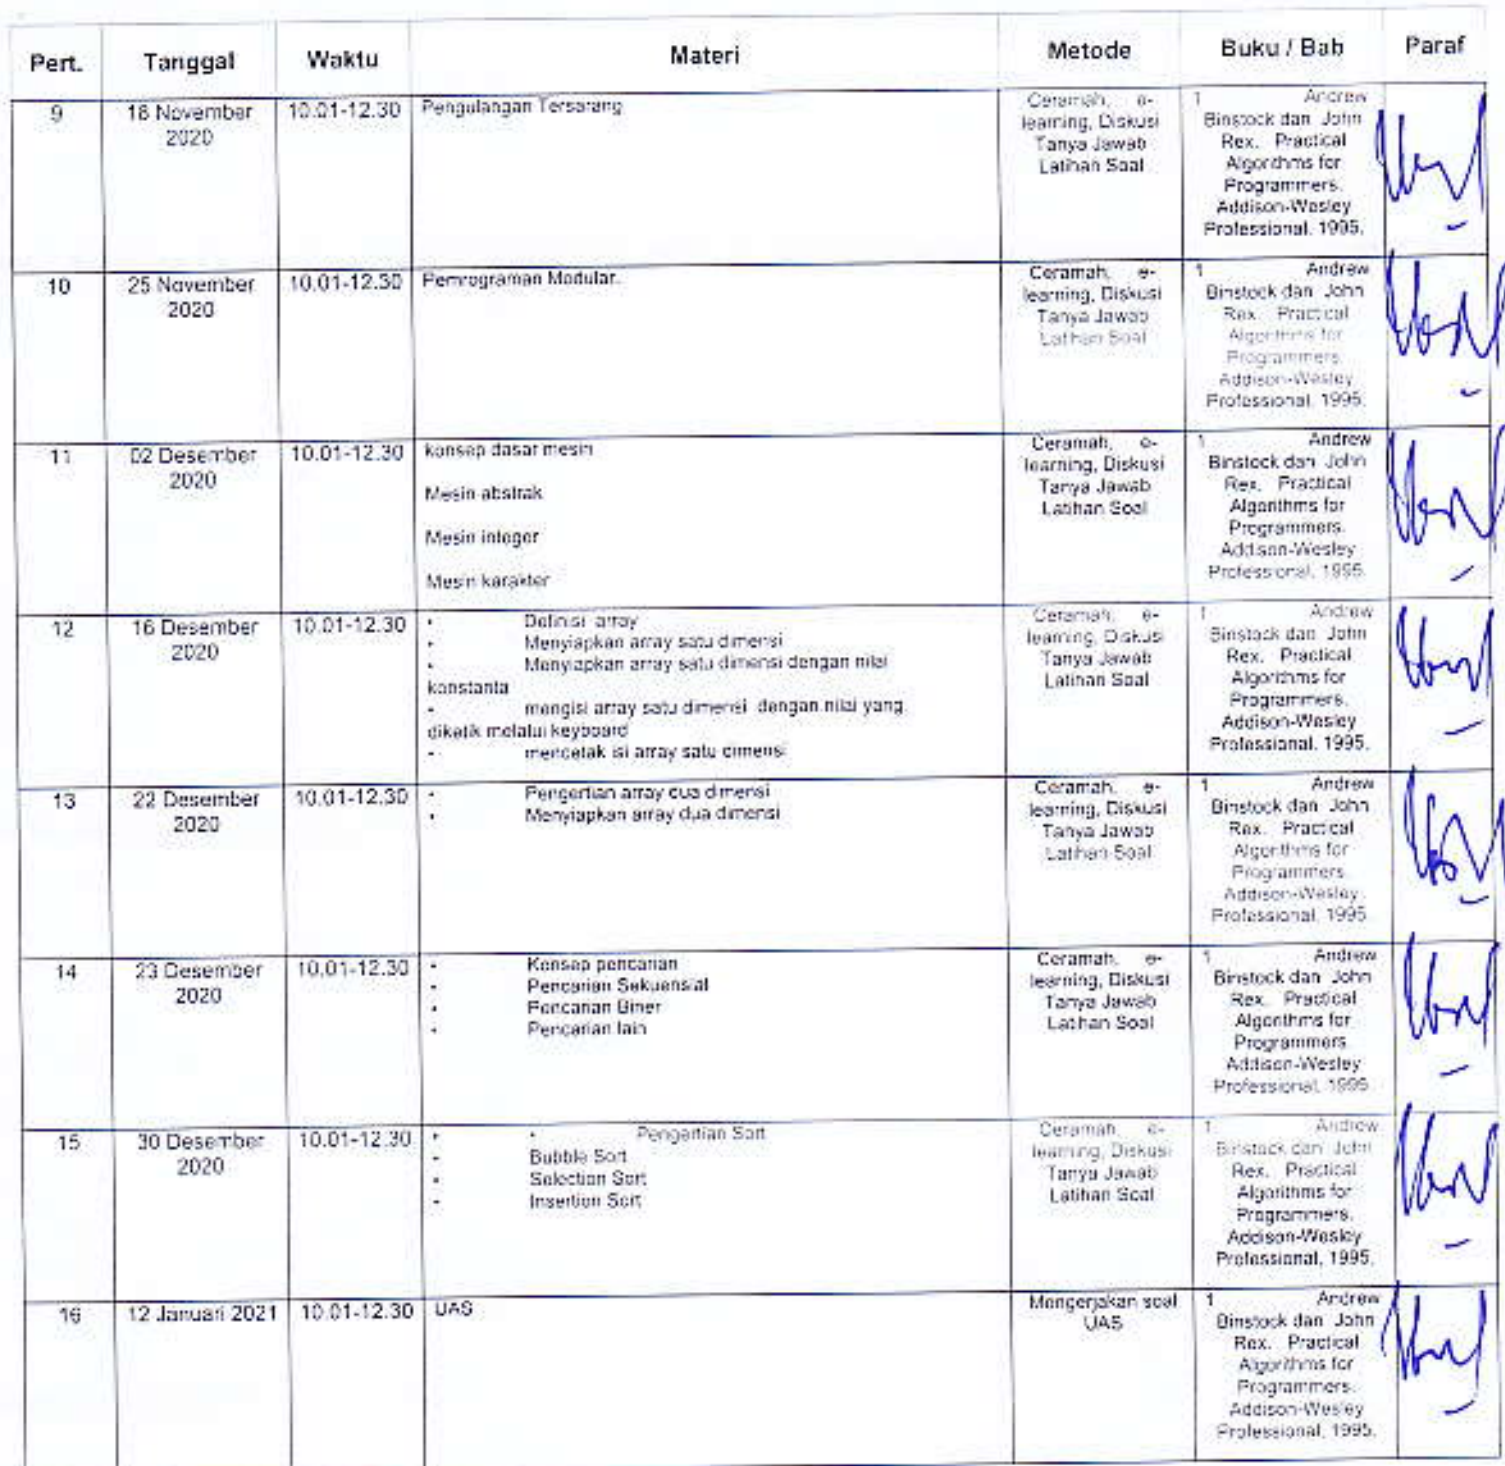 Pert. Tanggal Waktu Materi Metode Buku / Bab Paraf
9 18 November 2020 10.01-12.30 Pengulangan Tersarang
Ceramah, e-
learning, Diskusi
Tanya Jawab
Latihan Soal
1 Andrew
Binstock dan John
Rex. Practical
Algorithms for
Programmers.
Addison-Wesley
Professional. 1995.
10 25 November 2020 10.01-12.30 Pemrograman Modular.
Ceramah, e-
learning, Diskusi
Tanya Jawab
Latihan Soal
1 Andrew
Binstock dan John
Rex. Practical
Algorithms for
Programmers.
Addison-Wesley
Professional. 1995.
11 02 Desember 2020 10.01-12.30 konsep dasar mesin
Mesin abstrak
Mesin integer
Mesin karakter
Ceramah, e-
learning, Diskusi
Tanya Jawab
Latihan Soal
1 Andrew
Binstock dan John
Rex. Practical
Algorithms for
Programmers.
Addison-Wesley
Professional. 1995.
12 16 Desember 2020 10.01-12.30
• Definisi array
• Menyiapkan array satu dimensi
• Menyiapkan array satu dimensi dengan nilai
konstanta
• mengisi array satu dimensi dengan nilai yang
diketik melalui keyboard
• mencetak isi array satu dimensi
Ceramah, e-
learning, Diskusi
Tanya Jawab
Latihan Soal
1 Andrew
Binstock dan John
Rex. Practical
Algorithms for
Programmers.
Addison-Wesley
Professional. 1995.
13 22 Desember 2020 10.01-12.30
• Pengertian array dua dimensi
• Menyiapkan array dua dimensi
Ceramah, e-
learning, Diskusi
Tanya Jawab
Latihan Soal
1 Andrew
Binstock dan John
Rex. Practical
Algorithms for
Programmers.
Addison-Wesley
Professional. 1995.
14 23 Desember 2020 10.01-12.30
• Konsep pencarian
• Pencarian Sekuensial
• Pencarian Biner
• Pencarian lain
Ceramah, e-
learning, Diskusi
Tanya Jawab
Latihan Soal
1 Andrew
Binstock dan John
Rex. Practical
Algorithms for
Programmers.
Addison-Wesley
Professional. 1995.
15 30 Desember 2020 10.01-12.30
• • Pengertian Sort
• Bubble Sort
• Selection Sort
• Insertion Sort
Ceramah, e-
learning, Diskusi
Tanya Jawab
Latihan Soal
1 Andrew
Binstock dan John
Rex. Practical
Algorithms for
Programmers.
Addison-Wesley
Professional. 1995.
16 12 Januari 2021 10.01-12.30 UAS
Mengerjakan soal
UAS
1 Andrew
Binstock dan John
Rex. Practical
Algorithms for
Programmers.
Addison-Wesley
Professional. 1995.